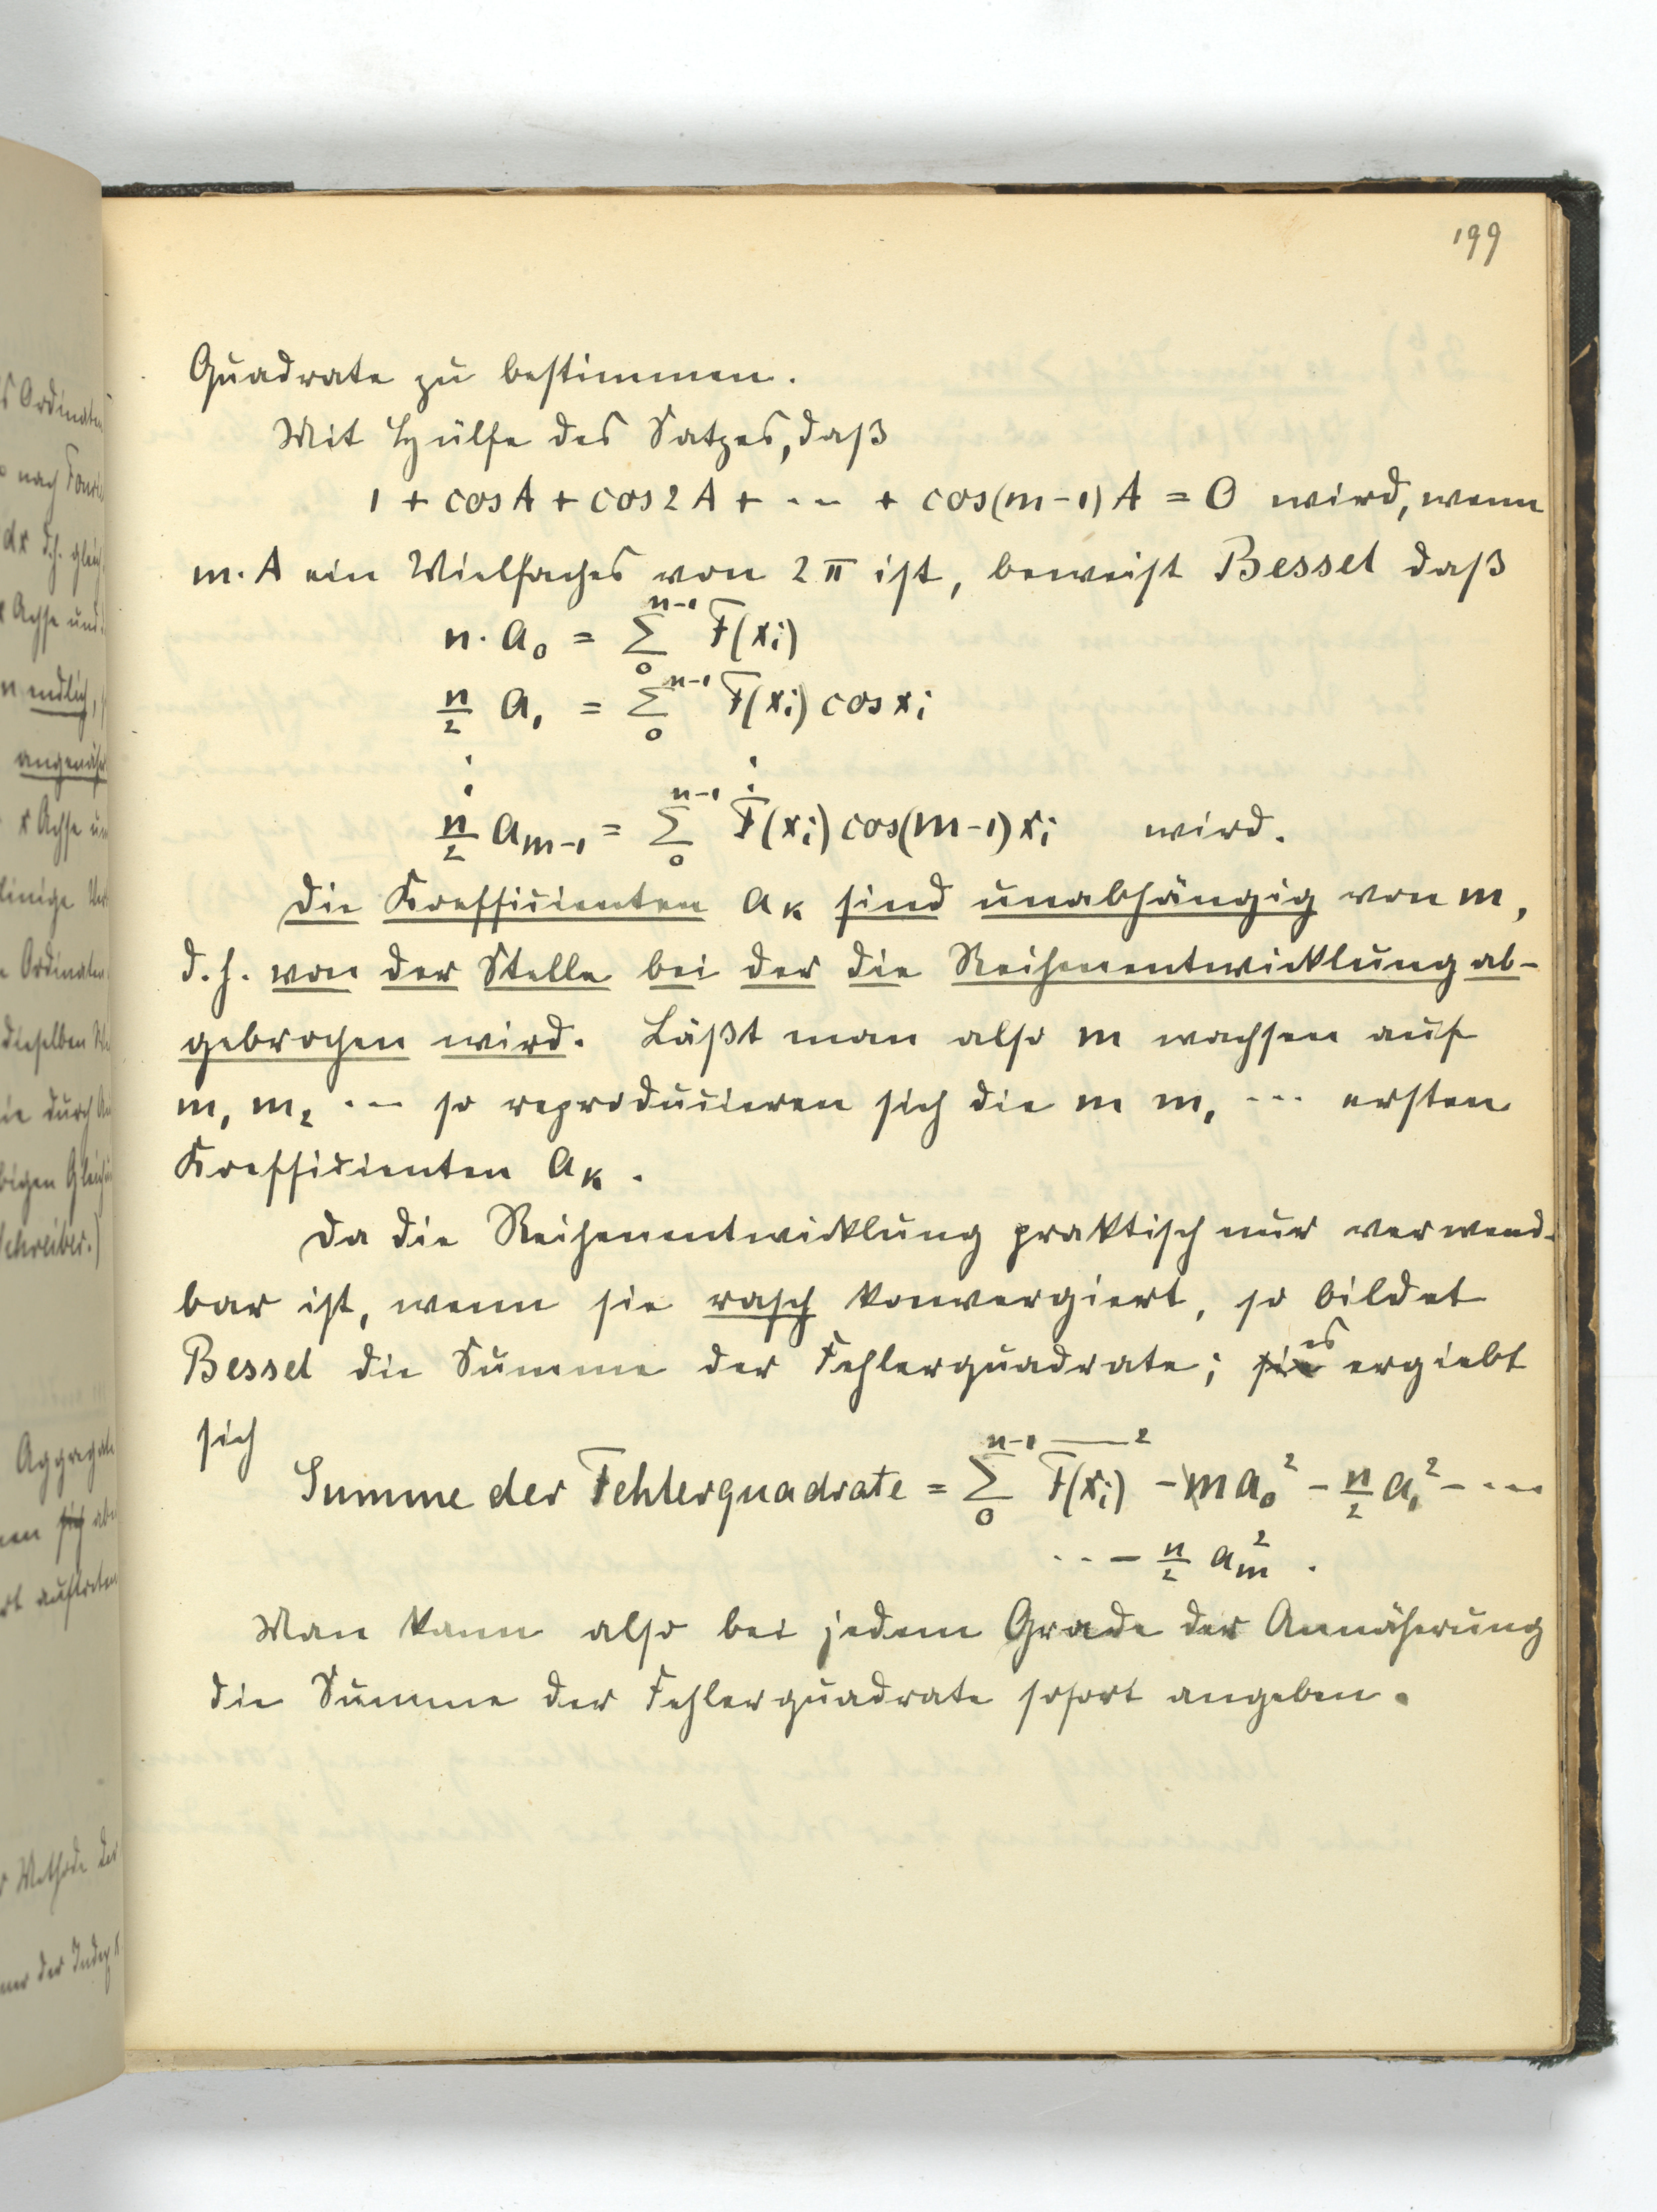 199
Quadrate zu bestimmen.
Mit Hülfe des Satzes, daß
1 + cos A + cos 2 A + ... + cos(m-1) A = 0 wird, wenn
m·A ein Vielfaches von 2π ist, beweist Bessel daß
n·a₀ = Σ₀ⁿ⁻¹ F(xᵢ)
n/2 a₁ = Σ₀ⁿ⁻¹ F(xᵢ) cos xᵢ
⋮ ⋮
n/2 aₘ₋₁ = Σ₀ⁿ⁻¹ F(xᵢ) cos(m-1)xᵢ wird.
Die Koefficienten aₖ sind unabhängig von m,
d. h. von der Stelle bei der die Reihenentwicklung ab-
gebrochen wird. Läßt man also m wachsen auf
m₁ m₂ ... so reproducieren sich die m m₁ ... ersten
Koefficienten aₖ.
Da die Reihenentwicklung praktisch nur verwend-
bar ist, wenn sie rasch konvergiert, so bildet
es
Bessel die Summe der Fehlerquadrate; sie ergiebt
sich
Summe der Fehlerquadrate = Σ₀ⁿ⁻¹ F(xᵢ)² - m a₀² - n/2 a₁² - ...
.. - n/2 aₘ².
Man kann also bei jedem Grade der Annäherung
die Summe der Fehlerquadrate sofort angeben.